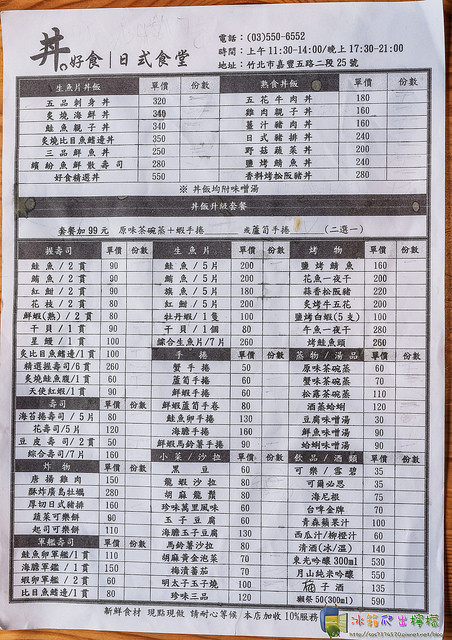 丼。好食｜日式食堂
電話：(03)550-6552
時間：上午 11:30-14:00/晚上 17:30-21:00
地址：竹北市嘉豐五路二段 25 號
生魚片丼飯 單價 份數 熟食丼飯 單價 份數
五品刺身丼 320 五花牛肉丼 180
炙燒海鮮丼 340 雞肉親子丼 160
鮭魚親子丼 340 薑汁豬肉丼 160
炙燒比目魚鰭邊丼 350 日式豬排丼 240
三品鮮魚丼 250 野菇蔬菜丼 200
繽紛魚鮮散壽司 280 鹽烤鯖魚丼 240
好食精選丼 550 香料烤松阪豬丼 280
※ 丼飯均附味噌湯
丼飯升級套餐
套餐加 99 元 原味茶碗蒸＋蝦手捲 或蘆筍手捲 (二選一)
握壽司 單價 份數 生魚片 單價 份數 烤物 單價 份數
鮭魚/2 貫 90 鮭魚/5 片 200 鹽烤鯖魚 160
鮪魚/2 貫 90 鮪魚/5 片 200 花魚一夜干 200
紅魽/2 貫 90 旗魚/5 片 180 蒜香松阪豬 220
花枝/2 貫 80 紅魽/5 片 200 炙烤牛五花 200
鮮蝦(熟)/2 貫 80 牡丹蝦/1 隻 100 鹽烤白蝦(5 支) 100
干貝/1 貫 90 干貝/1 個 80 午魚一夜干 280
星鰻/1 貫 100 綜合生魚片/7 片 260 烤鮭魚頭 260
炙比目魚鰭邊/1 貫 100 手捲 單價 份數 蒸物/湯品 單價 份數
精選握壽司/6 貫 260 蟹手捲 50 原味茶碗蒸 60
炙燒鮭魚腹/1 貫 60 蘆筍手捲 60 蟹味茶碗蒸 70
天使紅蝦/1 貫 90 鮮蝦手捲 60 松露茶碗蒸 110
壽司 單價 份數 鮮蝦蘆筍手卷 80 酒蒸蛤蜊 120
海苔捲壽司/5 片 80 鮭魚卵手捲 130 豆腐味噌湯 30
花壽司/5 片 120 海膽手捲 160 鮮魚味噌湯 90
豆皮壽司/2 貫 50 鮮蝦馬鈴薯手捲 90 蛤蜊味噌湯 90
綜合壽司/7 片 160 小菜/沙拉 單價 份數 飲品/酒類 單價 份數
炸物 單價 份數 黑豆 60 可樂/雪碧 35
唐揚雞肉 150 龍蝦沙拉 80 可爾必思 35
酥炸廣島牡蠣 280 胡麻龍鬚 80 海尼根 75
厚切日式豬排 160 珍味萬里風味 60 台啤金牌 70
蔬菜可樂餅 90 玉子豆腐 60 青森蘋果汁 100
起司可樂餅 110 海膽玉子豆腐 130 西瓜汁/柳橙汁 60
軍艦壽司 單價 份數 馬鈴薯沙拉 80 清酒(冰/溫) 140
鮭魚卵軍艦/1 貫 110 胡麻黃金泡菜 70 東光吟釀 300ml 530
海膽軍艦/1 貫 150 梅漬蕃茄 70 月山純米吟釀 550
蝦卵軍艦/2 貫 60 明太子玉子燒 100 柚子酒 135
比目魚鰭邊/1 貫 80 珍味三品 120 獺祭 50(300ml) 590
新鮮食材 現點現做 請耐心等候 本店加收 10%服務
冰箱爬出檸檬